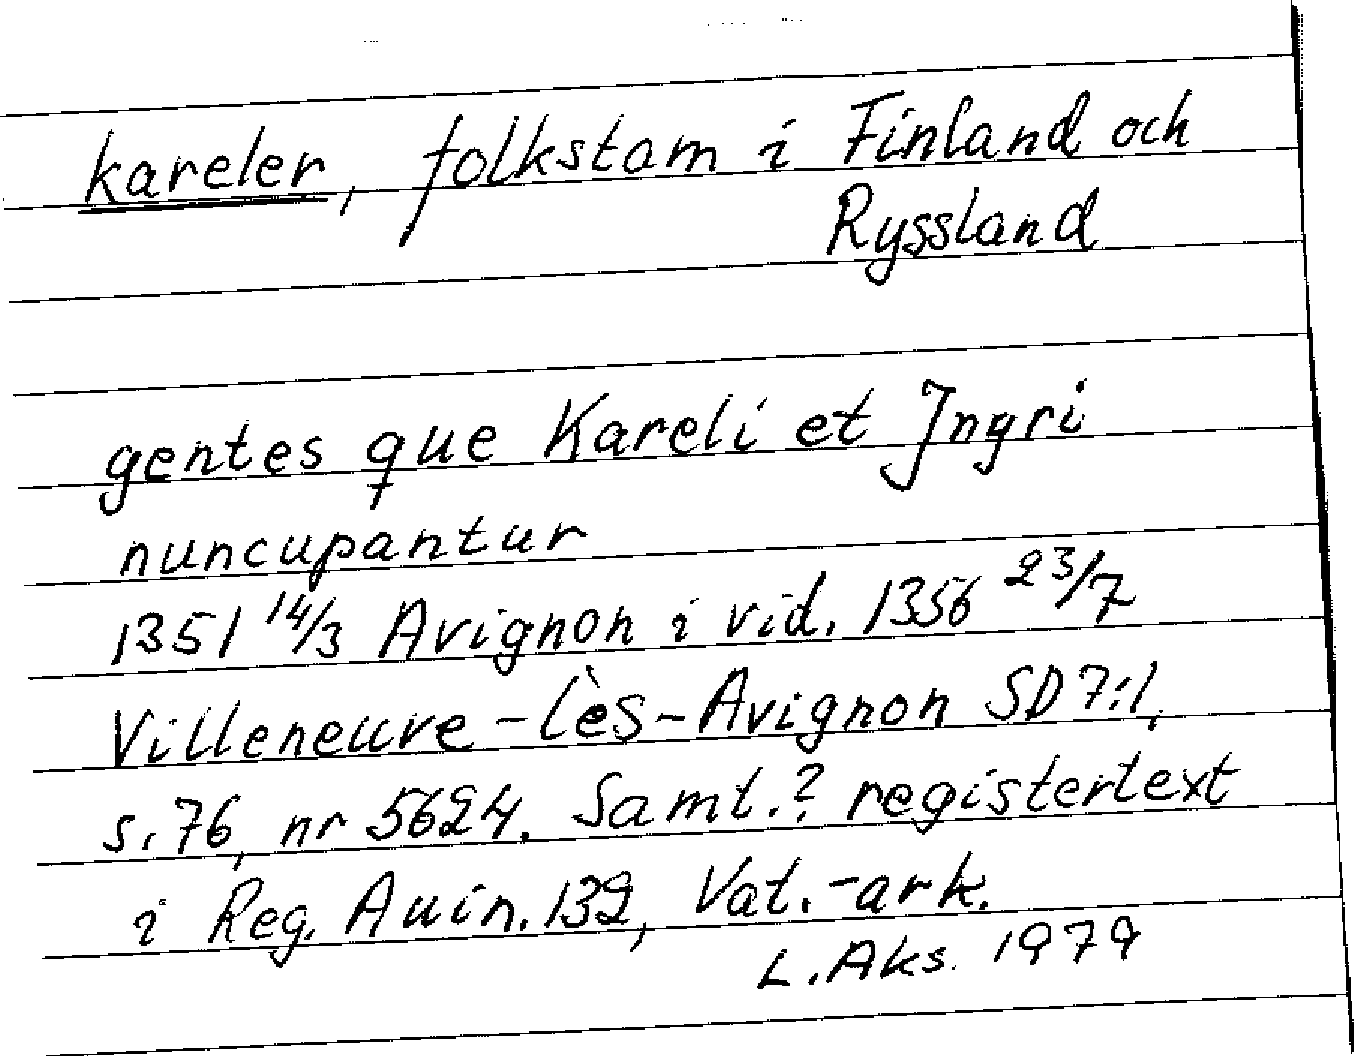 kareler, folkstam i Finland och
Ryssland
gentes que Kareli et Jngri
nuncupantur
1351 14/3 Avignon i vid. 1356 23/7
Villeneuve-lès-Avignon SD 7:1,
s. 76, nr 5624. Samt.? registertext
i Reg. Auin. 132, Vat.-ark.
L. Aks. 1979